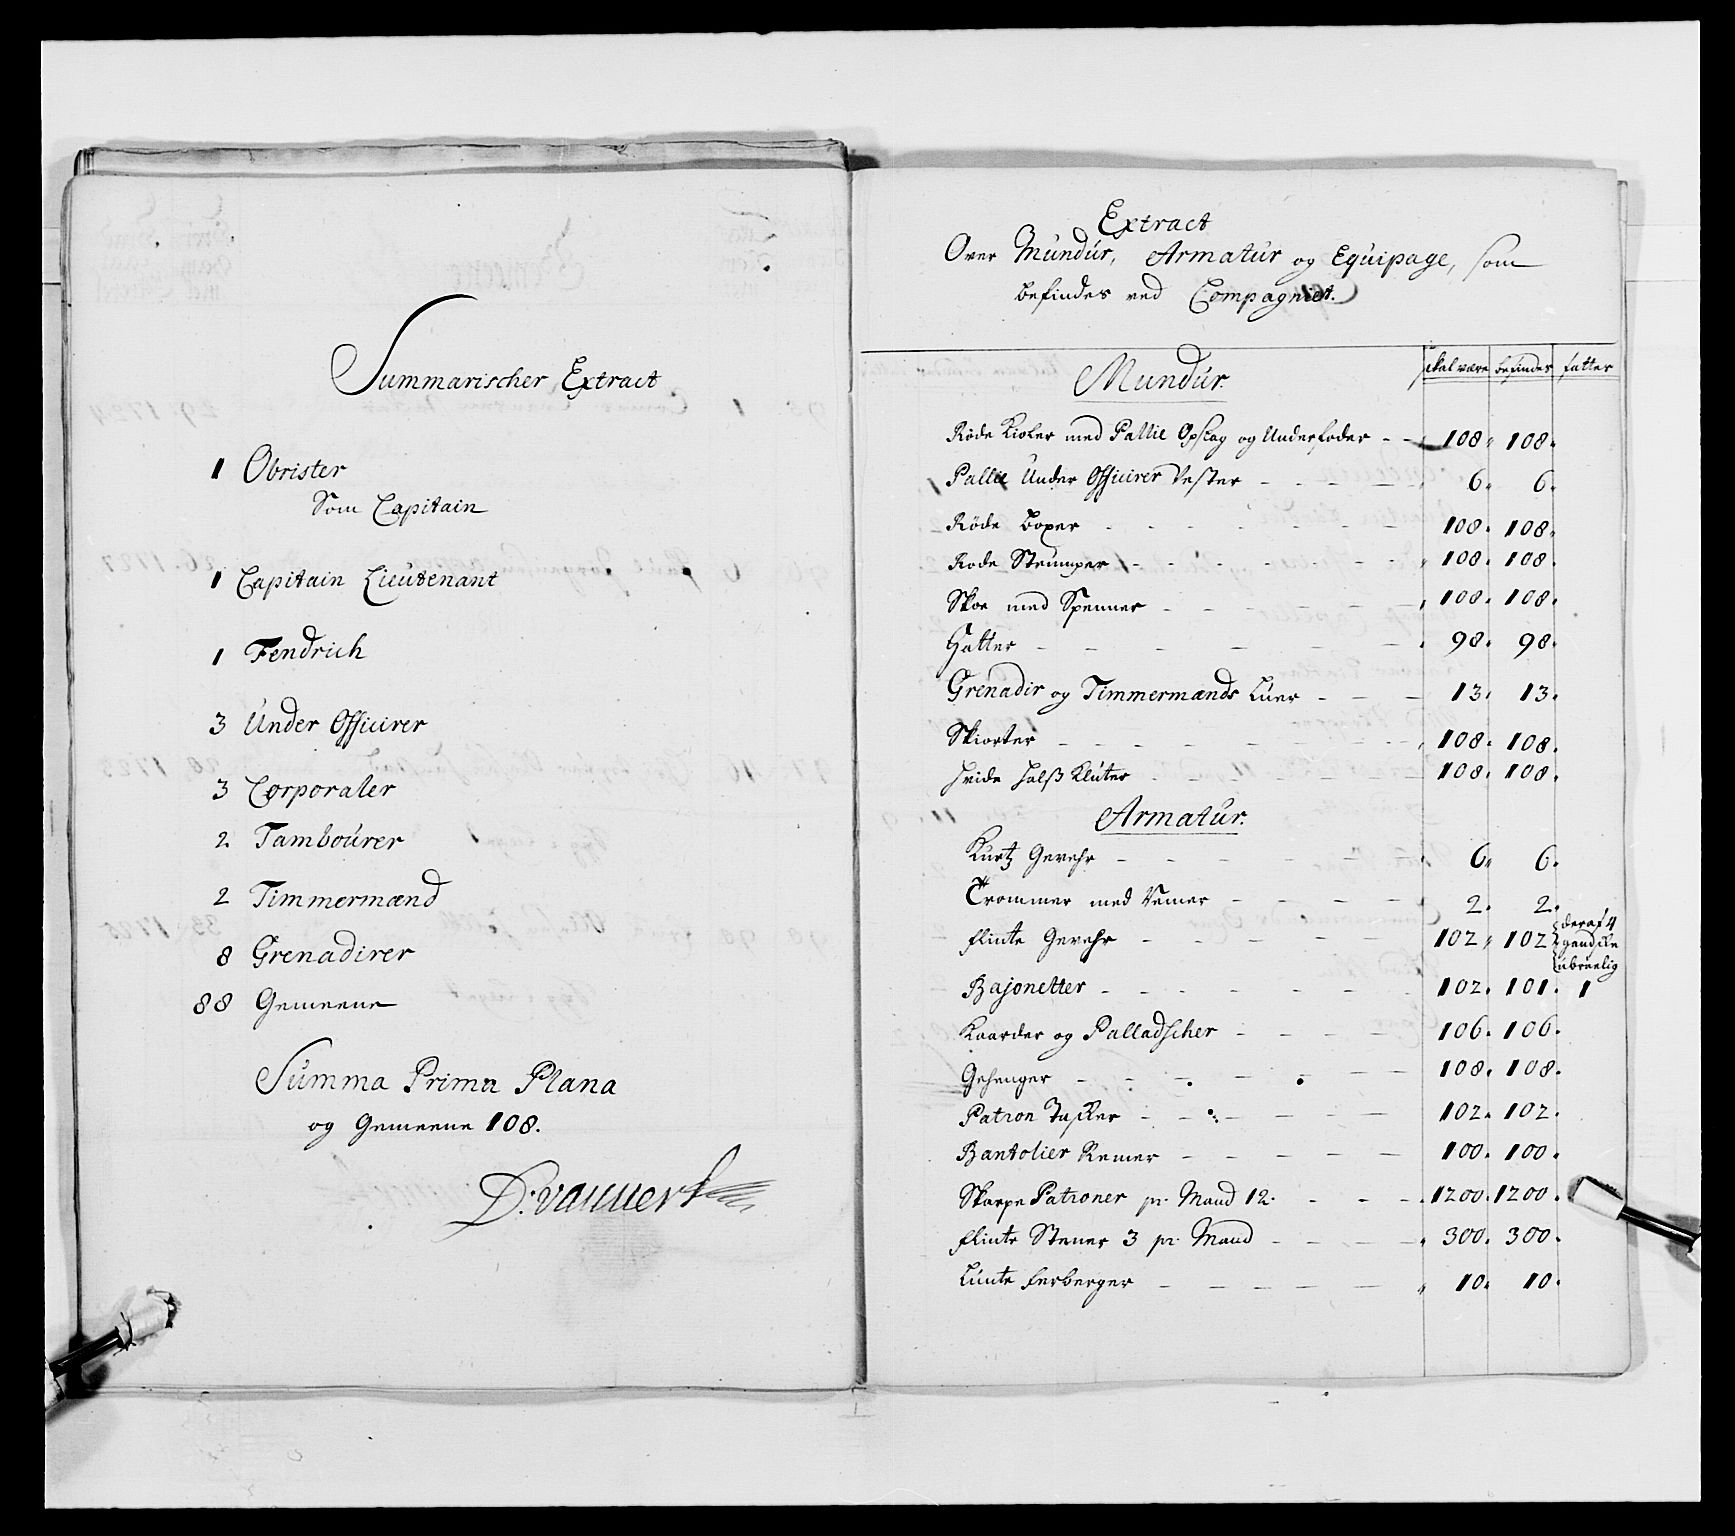 Summarischer Extract
1 Obrister
Som Capitain
1 Capitain Lieutenant
1 Fendrich
3 Under Officirer
3 Corporaler
2 Tambourer
2 Timmermænd
8 Grenadirer
88 Gemeene
Summa Prima Plana
og Gemeene 108.
Extract
Over Mundur, Armatur og Equipage, som
befindes ved Compagniet.
Mundur. skal være befindes fatter
Røde Kioler med Pallie Opslag og Underfoder - - 108. 108.
Pallie Under Officirer Vester - - - - 6. 6.
Røde Boxer - - - - - - 108. 108.
Rode Strumper - - - - - - 108. 108.
Skoe med Spenner - - - - - 108. 108.
Hatter - - - - - - 98. 98.
Grenadir og Timmermænds Luer - - - 13. 13.
Skiorter - - - - - - - 108. 108.
Hvide Halß Kluter - - - - - 108. 108.
Armatur.
Kurtz Gevehr - - - - - 6. 6.
Trommer med Remer - - - - 2. 2.
Flinte Gevehr - - - - - 102. 102 deraf 4
gandske
ubruelig
Bajonetter - - - - - - 102. 101. 1
Kaarder og Palladscher - - - - 106. 106.
Gehenger - - - - - - 108. 108.
Patron Tasker - - - - - - 102. 102.
Bantolier Remer - - - - - 100. 100.
Skarpe Patroner pr. Mand 12. - - - 1200. 1200.
Flinte Stener 3 pr. Mand - - - - 300. 300.
Lunte Ferberger - - - - - 10. 10.